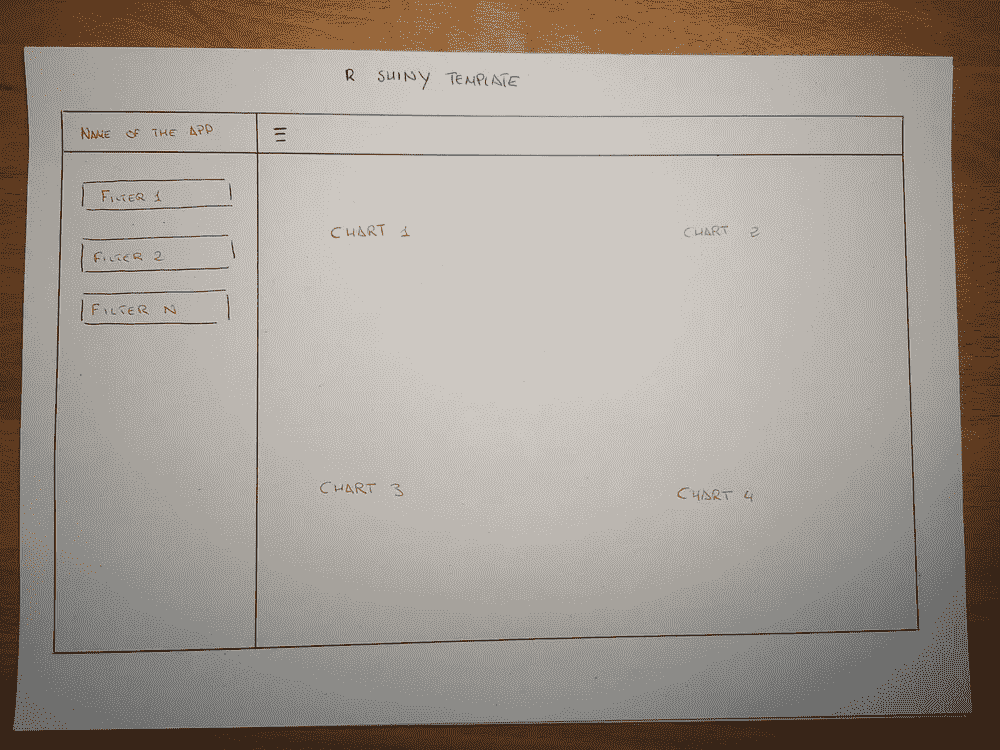 R SHINY TEMPLATE
NAME OF THE APP
FILTER 1
FILTER 2
FILTER N
CHART 1 CHART 2
CHART 3 CHART 4